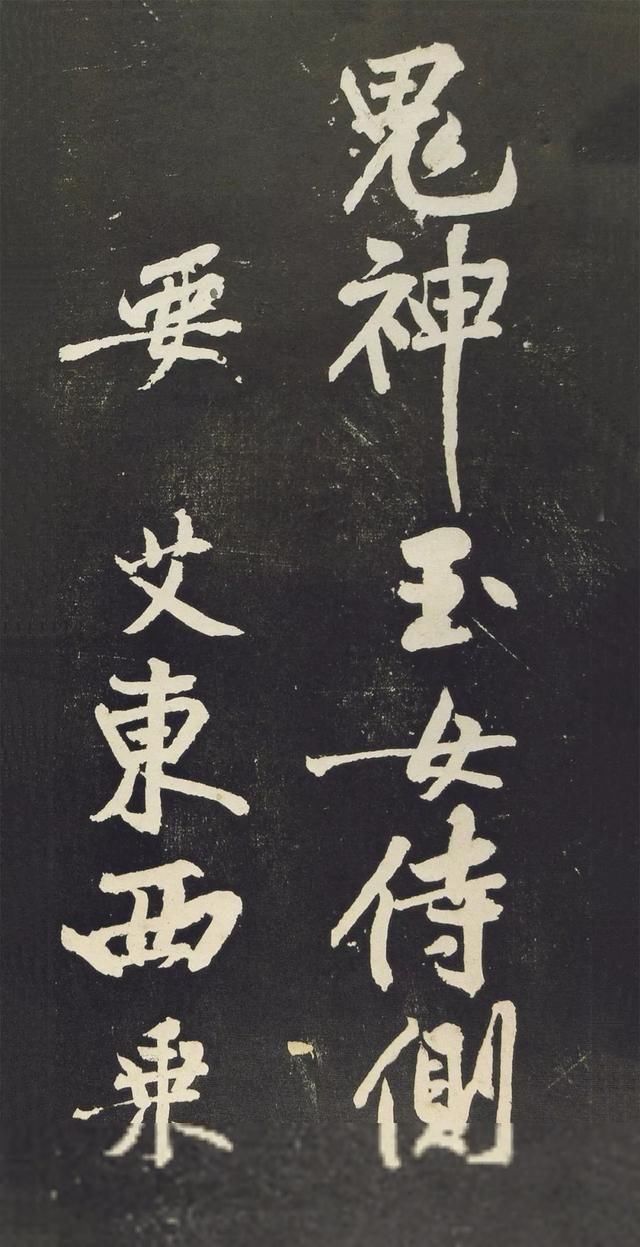 鬼神玉女侍側
要艾東西乗